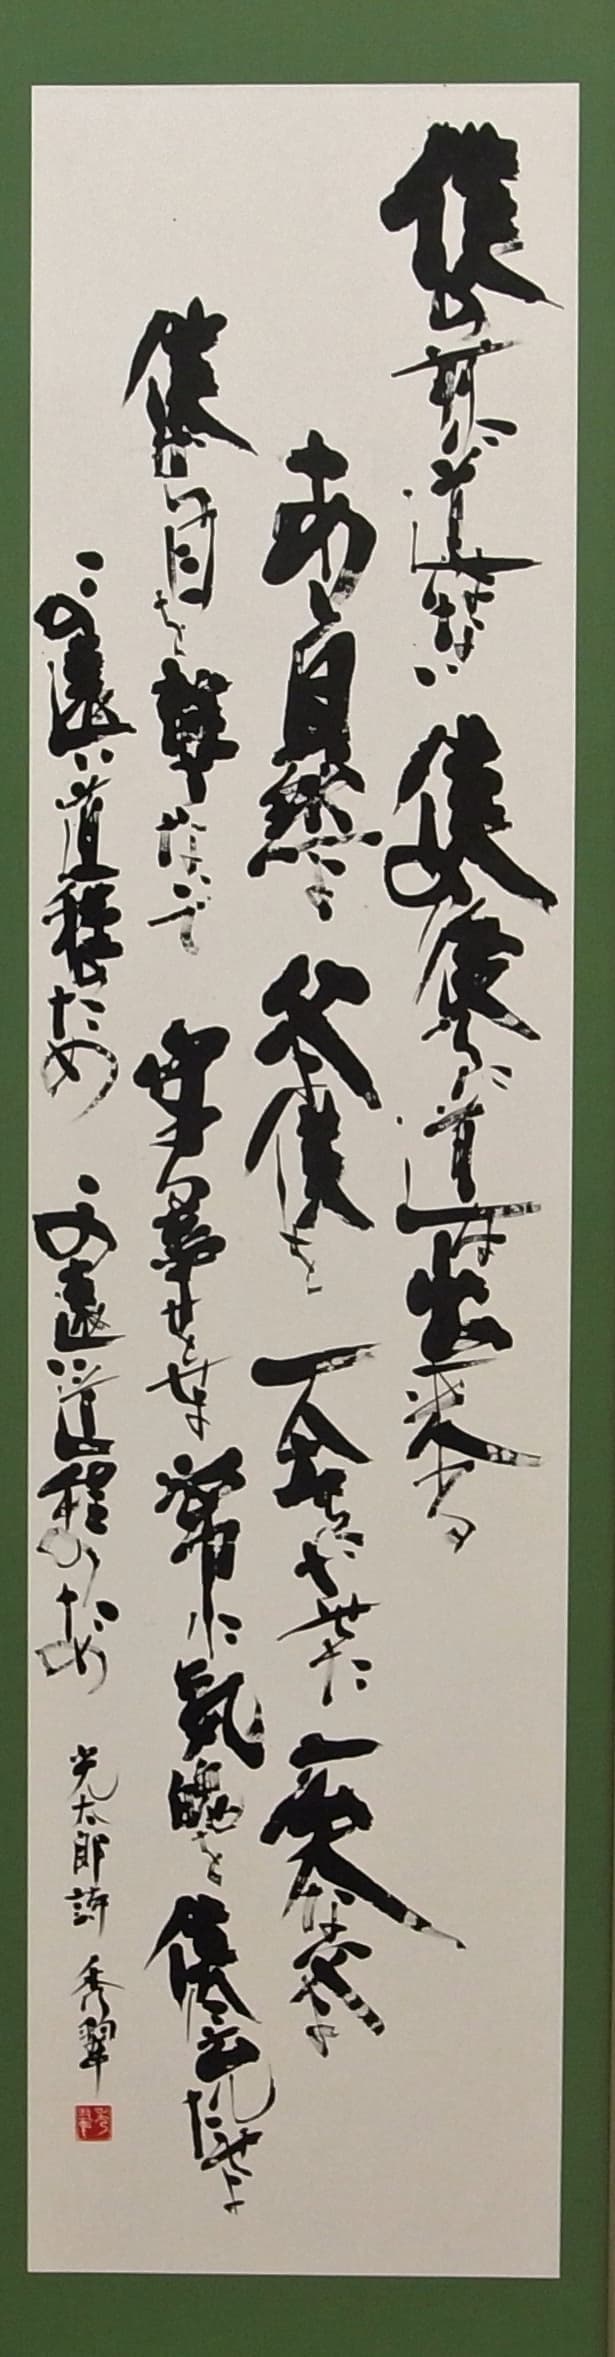 僕の前に道はない 僕の後ろに道は出来る
あゝ自然よ 父よ僕を 一人立ちにさせた 広大な父よ
僕から目を離さないで 守る事をせよ 常に気魄を僕に充たせよ
この遠い道程のため この遠い道程のため
光太郎詩 秀翠